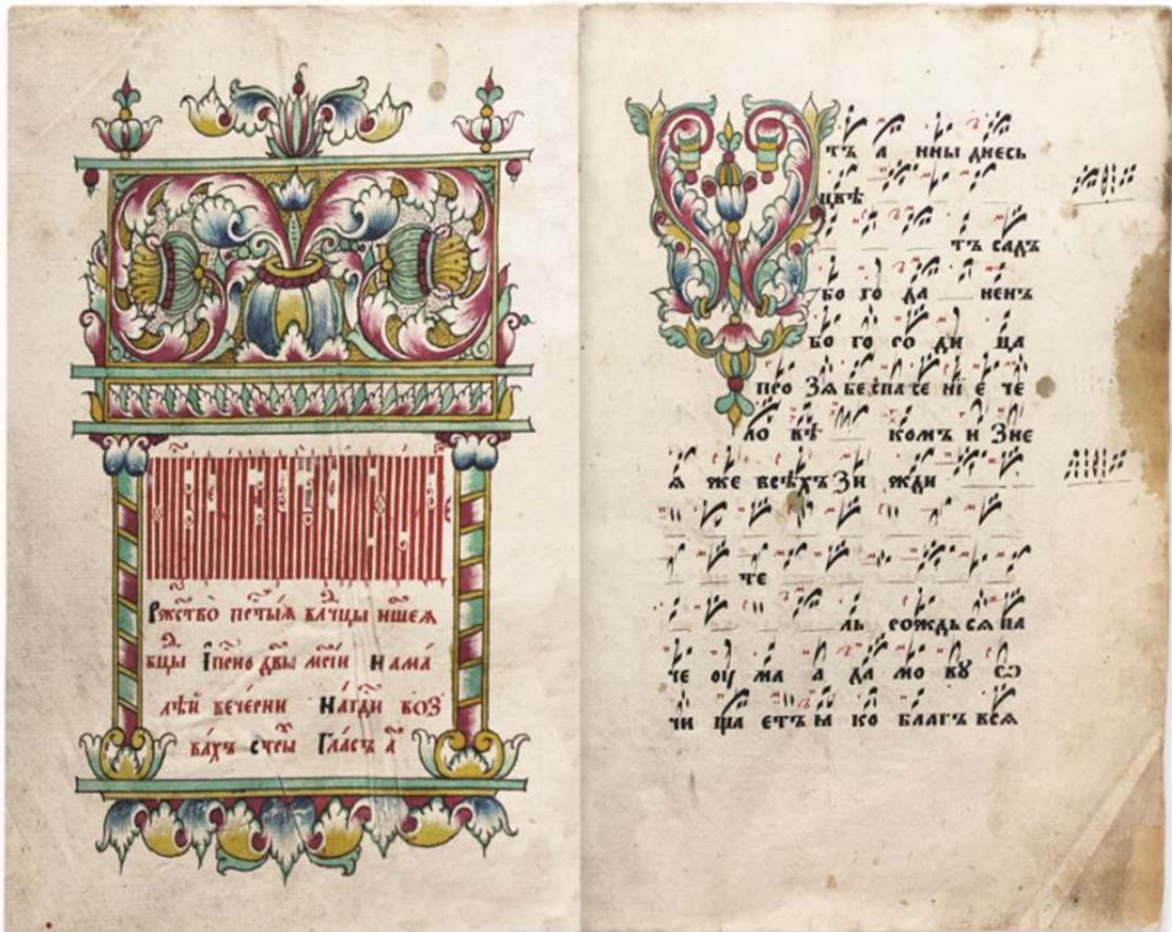 Рж҃ство̀ пст҃ыѧ влⷣчцы нш҃еѧ
бцы І҆ пⷭ҇но дв҃ы мр҃і́и На ма́
лѣй вече́рни На́ гдⷭ҇и воз
ва́хъ стⷯры Гла́съ а҃
тъ а нны днесь
цвѣ
тъ садъ
бо го да ненъ
бо го ро ди ца
про Зѧ бе спа се нї е че
ло вѣ комъ и Зне
ѧ же всѣхъ Зи жди
те
ль рождь сѧ па
че оу ма а да мо ву ѡ
чи ща етъ ꙗ ко благъ всѧ